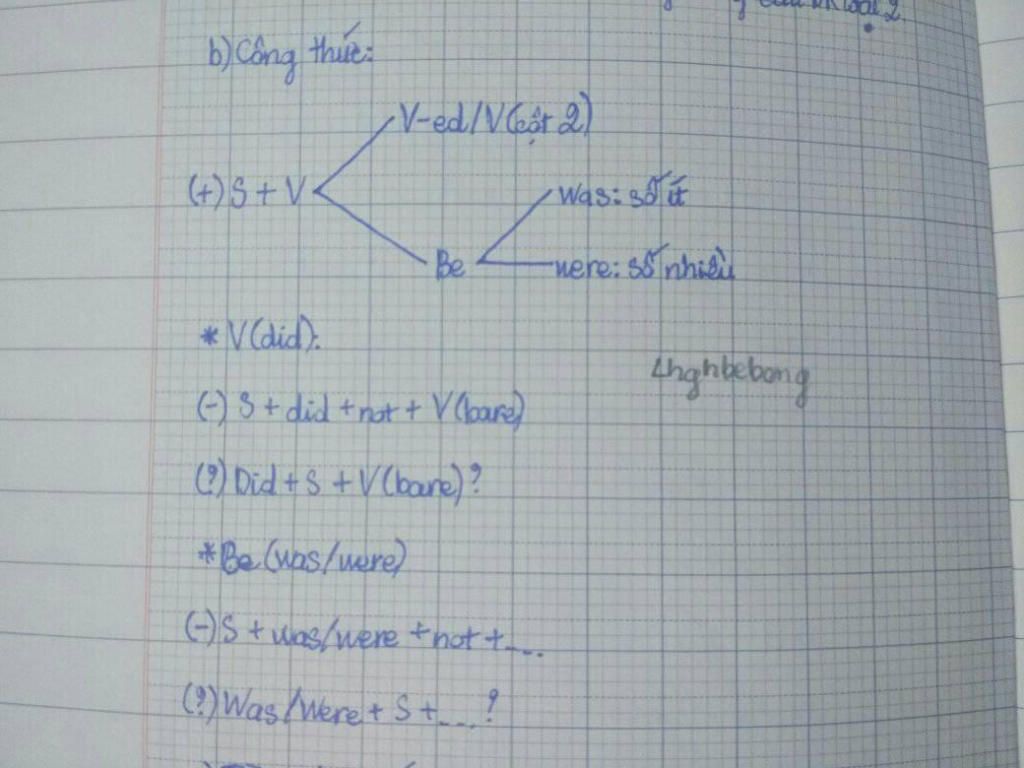 b) Công thức:
V-ed/V(cột 2)
(+) S + V
Was: số ít
Be
were: số nhiều
* V(did):
Lhghbebong
(-) S + did + not + V(bare)
(?) Did + S + V(bare)?
* Be (was/were)
(-) S + was/were + not + ....
(?) Was/Were + S + ...?